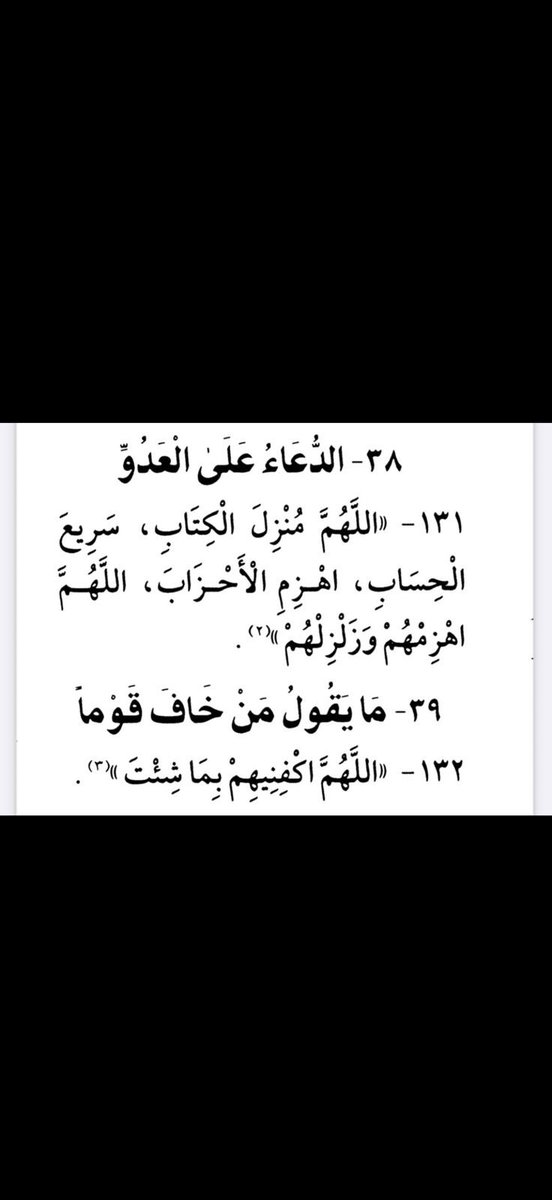 ٣٨- الدُّعَاءُ عَلَىٰ الْعَدُوِّ
١٣١- «اللَّهُمَّ مُنْزِلَ الْكِتَابِ، سَرِيعَ
الْحِسَابِ، اهْزِمِ الْأَحْزَابَ، اللَّهُمَّ
اهْزِمْهُمْ وَزَلْزِلْهُمْ»(٢).
٣٩- مَا يَقُولُ مَنْ خَافَ قَوْماً
١٣٢- «اللَّهُمَّ اكْفِنِيهِمْ بِمَا شِئْتَ»(٣).